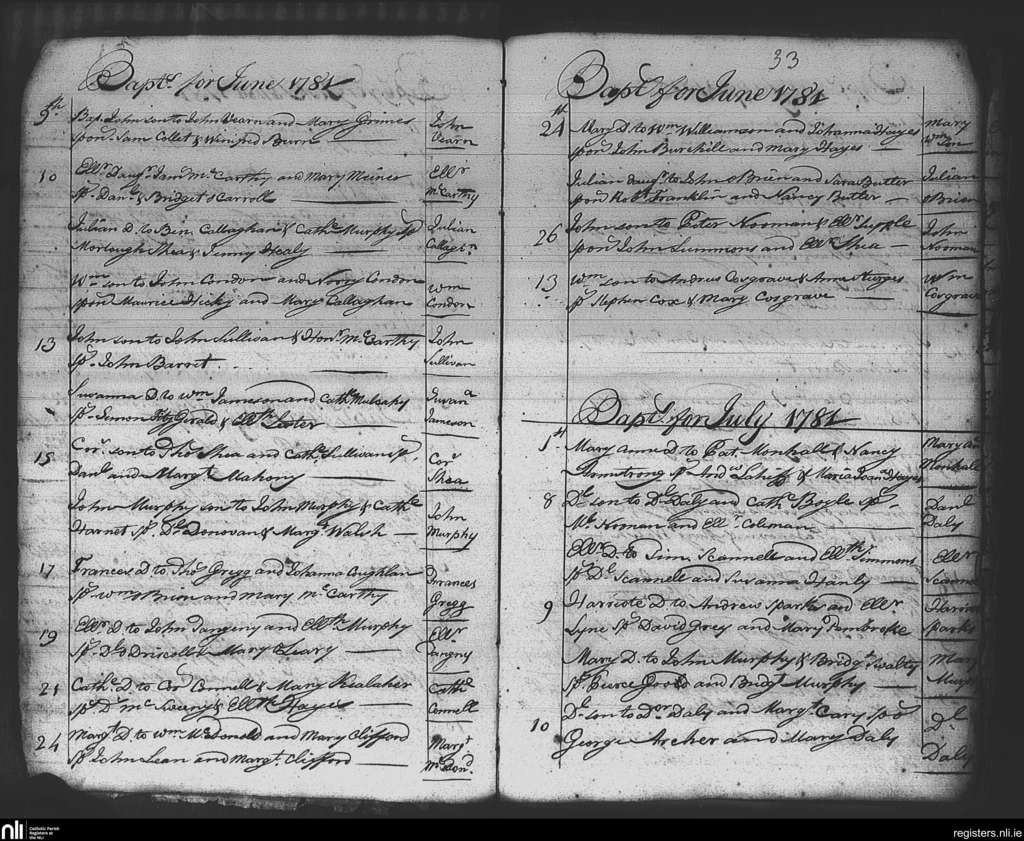 Bapts. for June 1781
9th Bap. John son to John Vearn and Mary Grimes John
spors Sam Collet & Winifred Burn Vearn
10 Ellr. Daugr. Jams. McCarthy and Mary Ellr
sp. Danl. & Bridget Carroll McCarthy
Julian d. to Ben. Callaghan & Cathe. Murphy sp Julian
Mortaugh Shea & Jenny Healy
Wm. son to John Condon and Norry Condon Wm
spors Maurice Hicky and Mary Callaghan Condon
13 John son to John Sullivan & Honr. McCarthy John
sp. John Barret Sullivan
Susanna D. to Wm Jameson and Cath. Mulcahy
sp. Simon FitzGerald & Ellth Lester Jameson
15 Cor. son to Thos. Shea and Cath. Sullivan sp. Cor
Danl. and Margt. Mahony Shea
John Murphy son to John Murphy & Cathe John
Harnet sp. Ds. Donovan & Margt. Walsh Murphy
17 Frances D to Thos. Gregg and Johanna Coughlan Frances
sp. Wm OBrien and Mary McCarthy Gregg
19 Ellr. D. to John Tangeny and Ellth Murphy Ellr
sp. D. ODriscoll & Mary Leary Tangny
21 Cathe. D to Cor. Connell & Mary Kealaher Cathe
sp. Ds. McSweeny & Ellth Hayes Connell
24 Margt. D to Wm McDonald and Mary Clifford Margt
sp. John Lean and Margt. Clifford McDond.
33
Bapts. for June 1781
24 Mary D. to Wm Williamson and Johanna Hayes Mary
spors John Burchill and Mary Hayes Wm son
Julian daugr. to John OBrien and Sara Butler Julian
spors Robt. Franklin and Nancy Butler OBrien
26 John son to Peter Nooman & Ellr. Supple John
spors John Summons and Ellr. Shea Nooman
13 Wm. son to Andrus Cosgrave & Anne Sturges Wm
sp. Stephen Cox & Mary Cosgrave Cosgrave
Bapts. for July 1781
1st Mary Anne D to Pat. Monhall & Nancy Mary An
Armstrong sp. Andw. Lahiff & Maria Joan Hayes Monhall
8 Ds. son to Ds. Daly and Cathe. Boyle sps. Danl
Mr. Noonan and Ellr. Coleman Daly
Ellr. D. to Tim. Scannell and Ellth Simmons Ellr
sp. Ds. Scannell and Susanna Scann
9 Harriote D. to Andrew Sparks and Ellr Harrio
Lyne sp. David Grey and Mary Pembroke Sparks
Mary D. to John Murphy & Bridgt. Swalty Mary
sp. Pierce and Bridgt Murphy Murp
10 Ds. son to Dor. Daly and Margt. Cary spors Ds
George Archer and Mary Daly Daly
nli Catholic Parish
Registers at
the NLI
registers.nli.ie